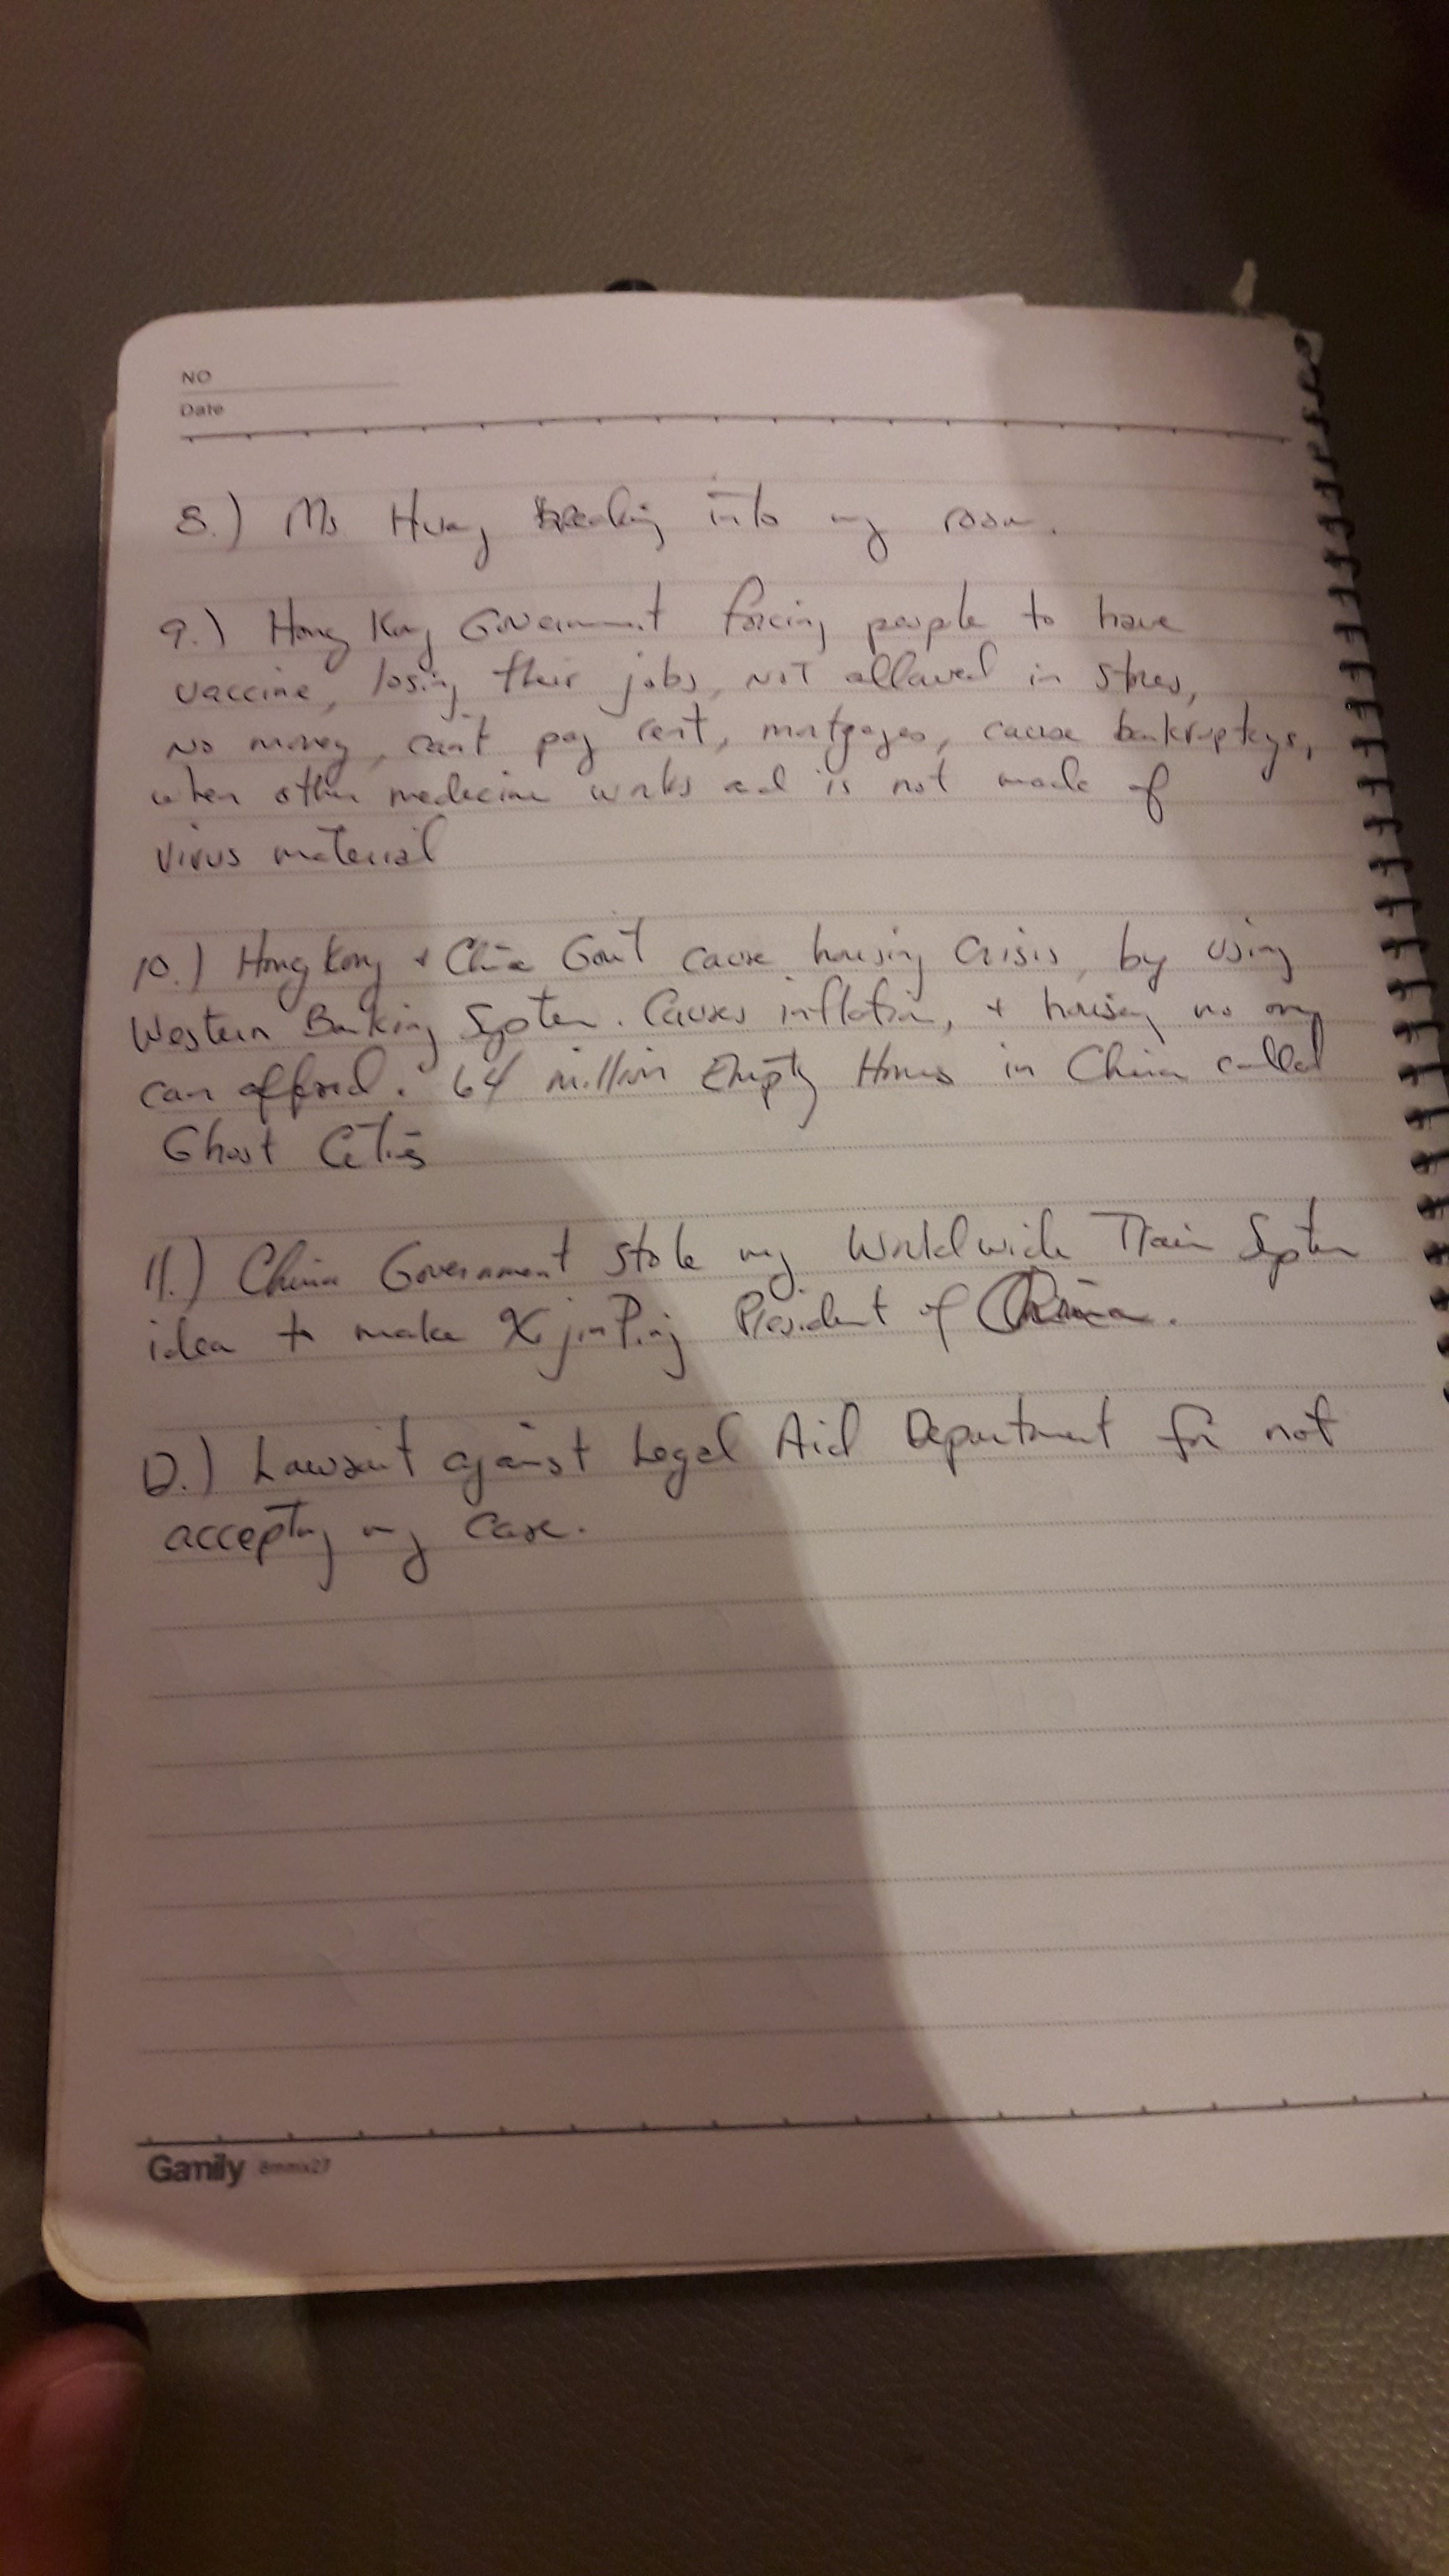 NO
Date
8.) Ms Huang breaking into my room.
9.) Hong Kong Government forcing people to have
vaccine, losing their jobs, not allowed in stores,
No money, can't pay rent, mortgages, cause bankruptcys,
when other medicine works and is not made of
virus material
10.) Hong Kong + China Gov't cause housing crisis, by using
Western Banking System. Causes inflation, + housing no one
can afford. 64 million Empty Homes in China called
Ghost Cities
11.) China Government stole my Worldwide Train System
idea to make Xi jin Ping President of China.
12.) Lawsuit against Legal Aid Department for not
accepting my case.
Gamily 8mmx27